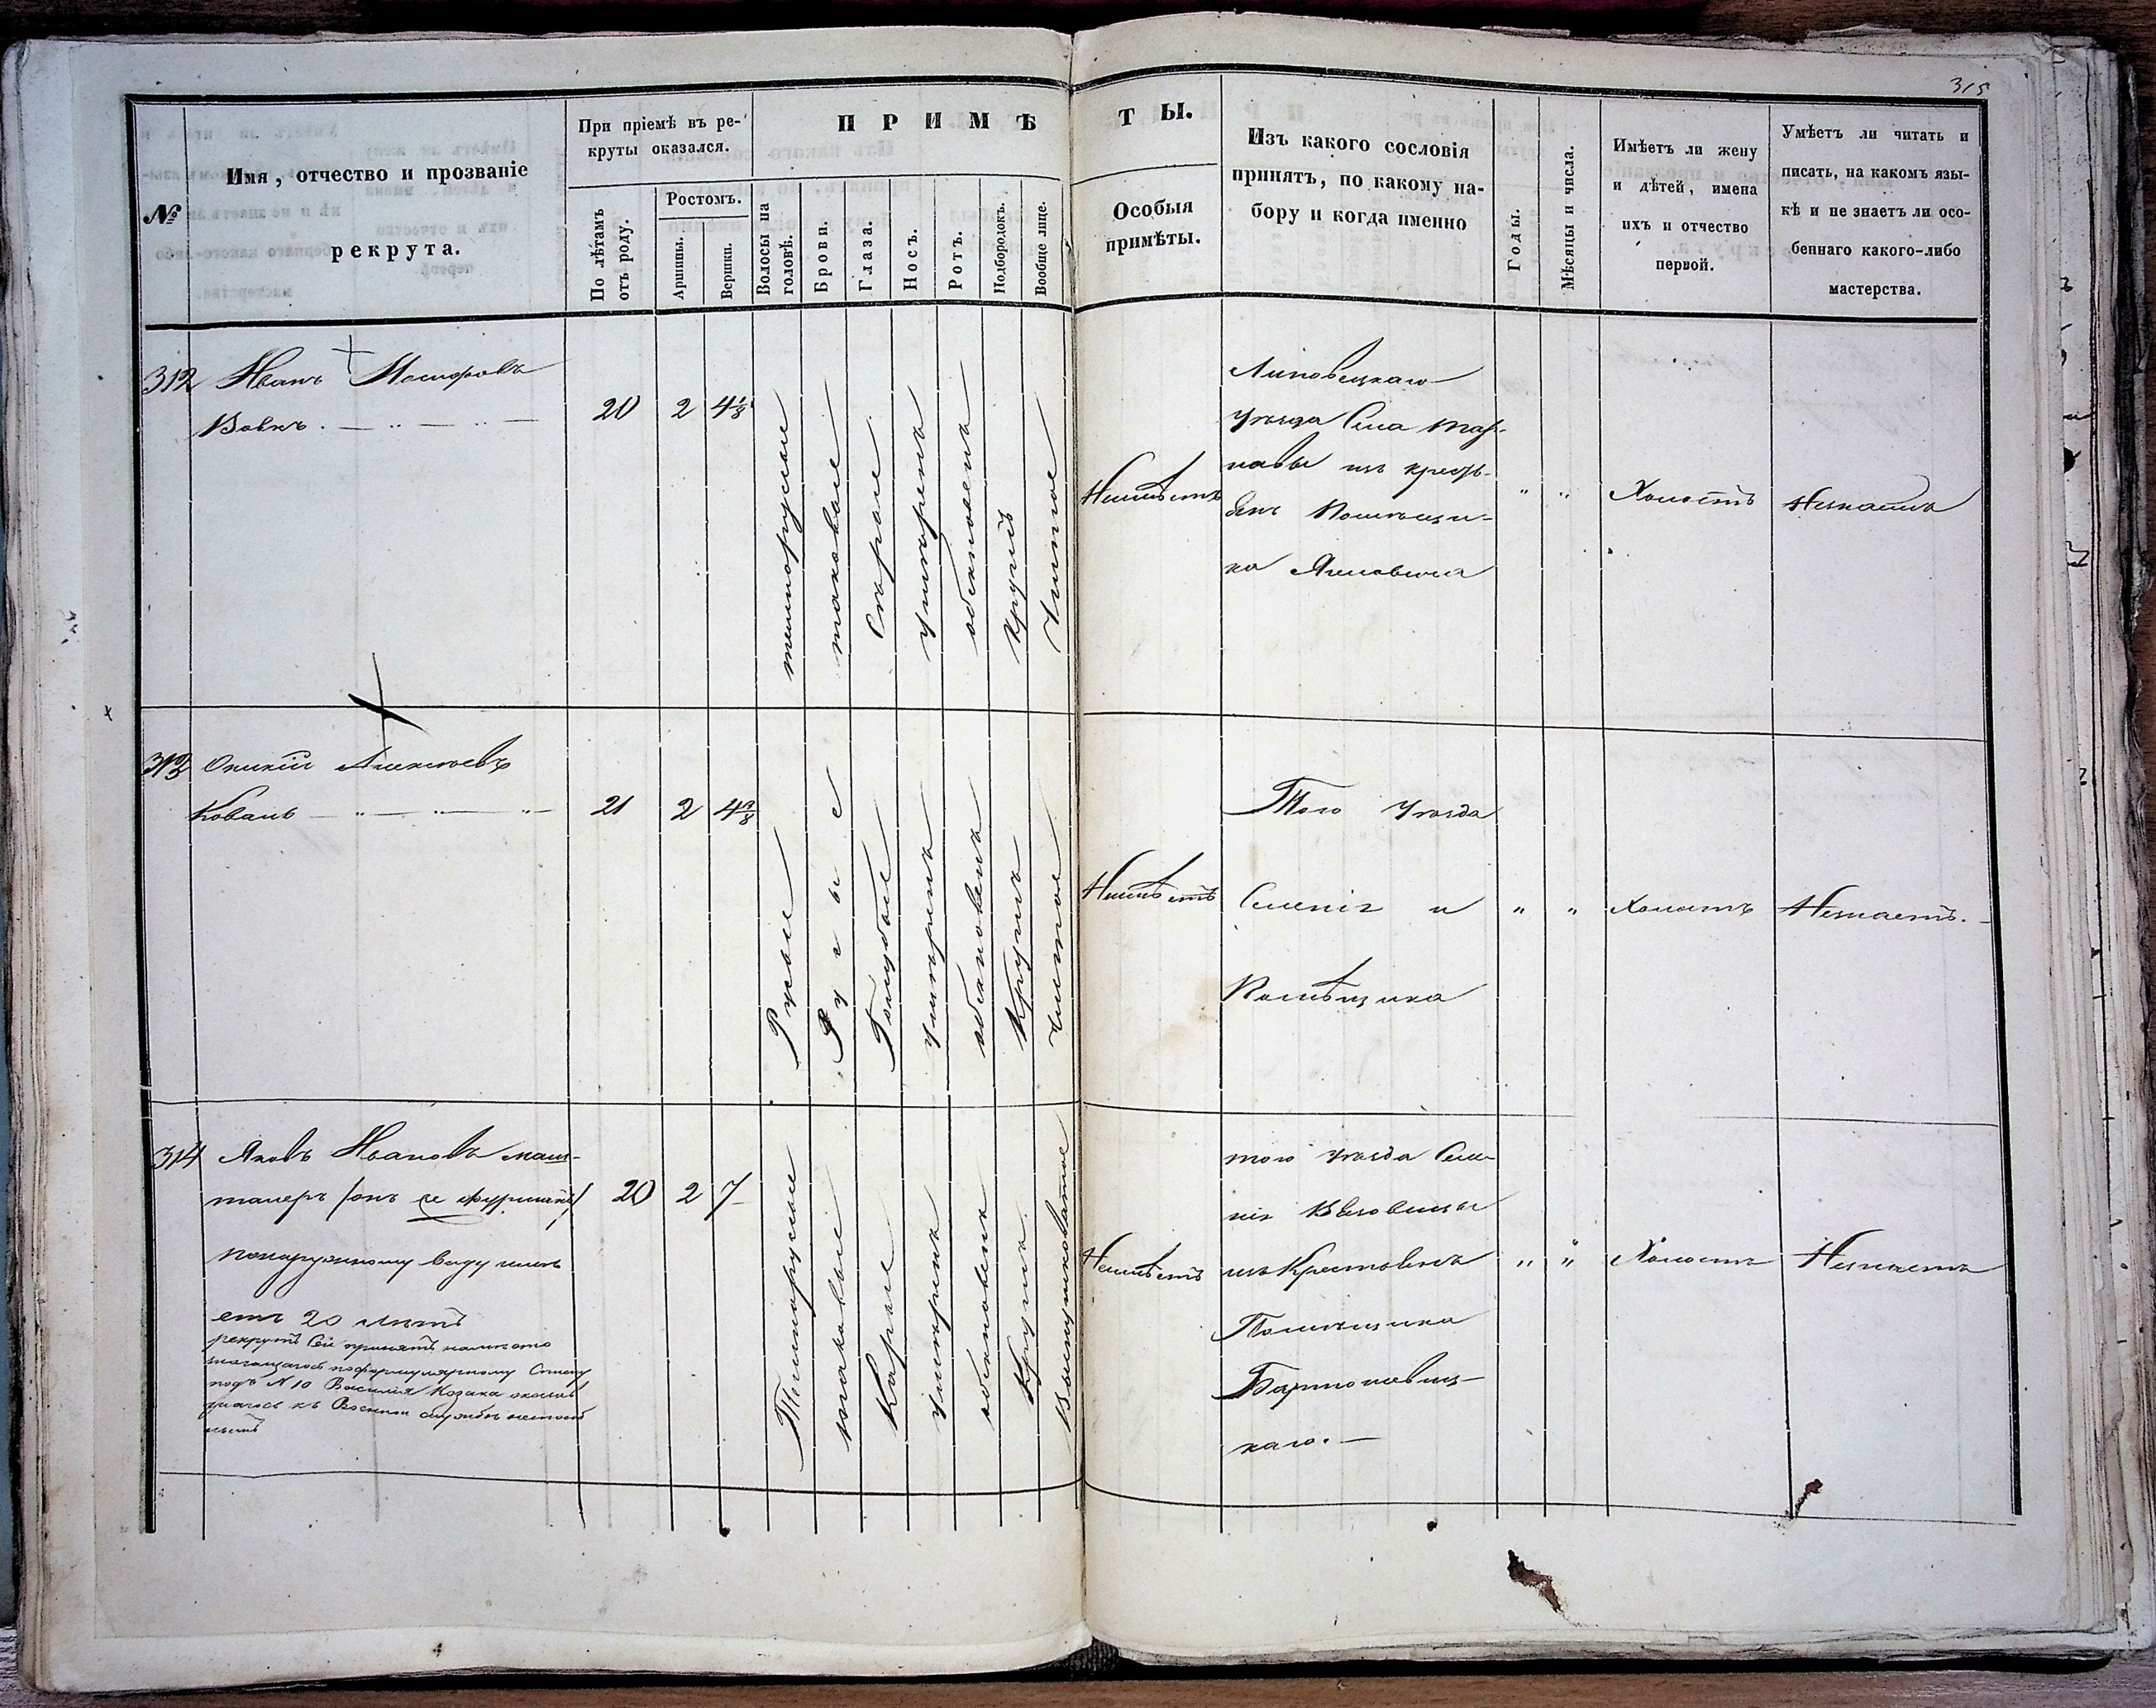 315
№
Имя, отчество и прозваніе
рекрута.
При пріемѣ въ ре-
круты оказался.
По лѣтамъ
отъ роду.
Ростомъ.
Аршины.
Вершки.
ПРИМѢ
Волосы на
головѣ.
Брови.
Глаза.
Носъ.
Ротъ.
Подбородокъ.
Вообще лице.
ТЫ.
Особыя
примѣты.
Изъ какого сословія
принятъ, по какому на-
бору и когда именно
Годы.
Мѣсяцы и числа.
Имѣетъ ли жену
и дѣтей, имена
ихъ и отчество
первой.
Умѣетъ ли читать и
писать, на какомъ язы-
кѣ и не знаетъ ли осо-
беннаго какого-либо
мастерства.
312 Иванъ
Вовкъ.
20
2
4 1/8
темнорусые
таковые
Сѣрые
умѣренъ
обыкновенъ
круглъ
Чистое
Неимѣетъ
Липовецкаго
уѣзда Села
изъ кресть-
янъ Помѣщи-
ка
" "
Холостъ
Незнаетъ
313 Алексѣевъ
Коваль
21
2
Русые
Русые
Голубые
умѣренъ
обыкновенъ
Круглъ
чистое
Неимѣетъ
Того уѣзда
Селенія и
Помѣщика
" "
Холостъ
Незнаетъ.
314 Яковъ Ивановъ маш-
талеръ /онъ же фурманъ/
понаружному виду имѣ
етъ 20 лѣтъ
рекрутъ сей принятъ намѣсто
поформулярному Списку
подъ № 10 Василія Козака
къ Военной службѣ
20
2
7
Темнорусые
таковые
Карые
умѣренъ
обыкновенъ
Круглъ
Неимѣетъ
того уѣзда Селе-
нія
изъ Крестьянъ
Помѣщика
каго.
" "
Холостъ
Незнаетъ